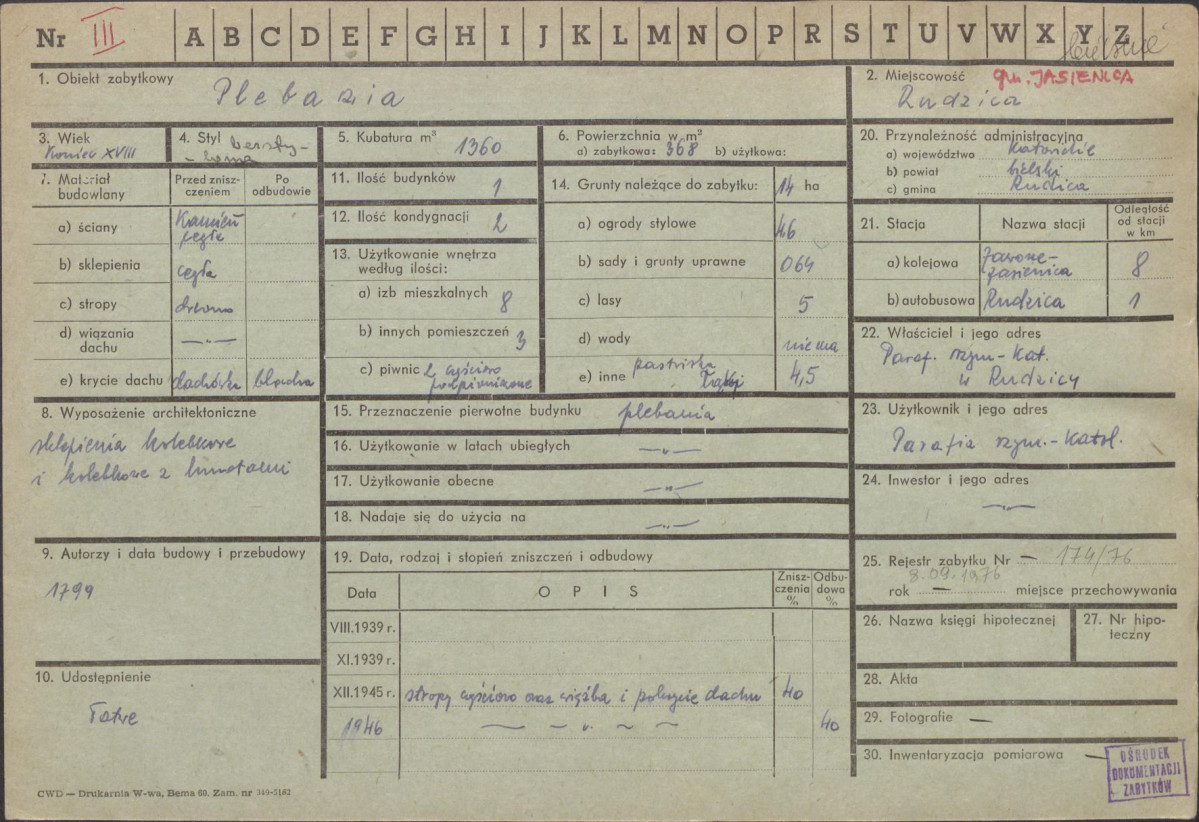 Nr III A B C D E F G H I J K L M N O P R S T U V W X Y Z
1. Obiekt zabytkowy
Plebania
2. Miejscowość gm. JASIENICA
Rudzica
3. Wiek
Koniec XVIII
4. Styl bezsty-
lowa
5. Kubatura m³ 1360
6. Powierzchnia w m²
a) zabytkowa: 368 b) użytkowa:
7. Materiał
budowlany
Przed znisz-
czeniem
Po
odbudowie
a) ściany Kamień
cegła
b) sklepienia cegła
c) stropy drewno
d) wiązania
dachu —„—
e) krycie dachu dachówka blacha
8. Wyposażenie architektoniczne
sklepienia kolebkowe
i kolebkowe z lunetami
9. Autorzy i data budowy i przebudowy
1799
10. Udostępnienie
Łatwe
11. Ilość budynków 1
12. Ilość kondygnacji 2
13. Użytkowanie wnętrza
według ilości:
a) izb mieszkalnych 8
b) innych pomieszczeń 3
c) piwnic 2 częściowo
podpiwniczone
14. Grunty należące do zabytku: 14 ha
a) ogrody stylowe 46
b) sady i grunty uprawne 064
c) lasy 5
d) wody nie ma
e) inne pastwiska
Łąki 4,5
15. Przeznaczenie pierwotne budynku plebania
16. Użytkowanie w latach ubiegłych —„—
17. Użytkowanie obecne —„—
18. Nadaje się do użycia na —„—
19. Data, rodzaj i stopień zniszczeń i odbudowy
Data O P I S Znisz-
czenia
%
Odbu-
dowa
%
VIII.1939 r.
XI.1939 r.
XII.1945 r. stropy częściowo oraz więźba i pokrycie dachu 40
1946 — — „ ~ ~ 40
20. Przynależność administracyjna
a) województwo Katowickie
b) powiat bielski
c) gmina Rudzica
21. Stacja Nazwa stacji Odległość
od stacji
w km
a) kolejowa Jaworze-
Jasienica 8
b) autobusowa Rudzica 1
22. Właściciel i jego adres
Paraf. rzym-kat.
w Rudzicy
23. Użytkownik i jego adres
Parafia rzym.-katol.
24. Inwestor i jego adres
—„—
25. Rejestr zabytku Nr — 174/76
8.09.1976
rok — miejsce przechowywania
26. Nazwa księgi hipotecznej
27. Nr hipo-
teczny
28. Akta
29. Fotografie —
30. Inwentaryzacja pomiarowa —
OŚRODEK
DOKUMENTACJI
ZABYTKÓW
CWD — Drukarnia W-wa, Bema 60. Zam. nr 349-51/62